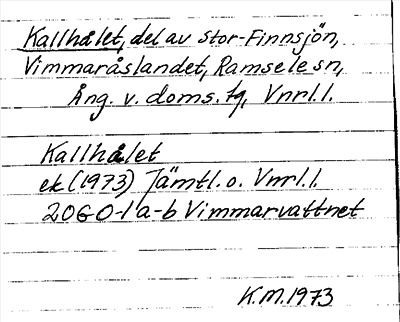 Kallhålet, del av Stor-Finnsjön,
Vimmaråslandet, Ramsele sn,
Ång. v. doms. tg, Vnrl.l.
Kallhålet
ek (1973) Jämtl. o. Vnrl.l.
20GO-1a-b Vimmarvattnet
K.M.1973